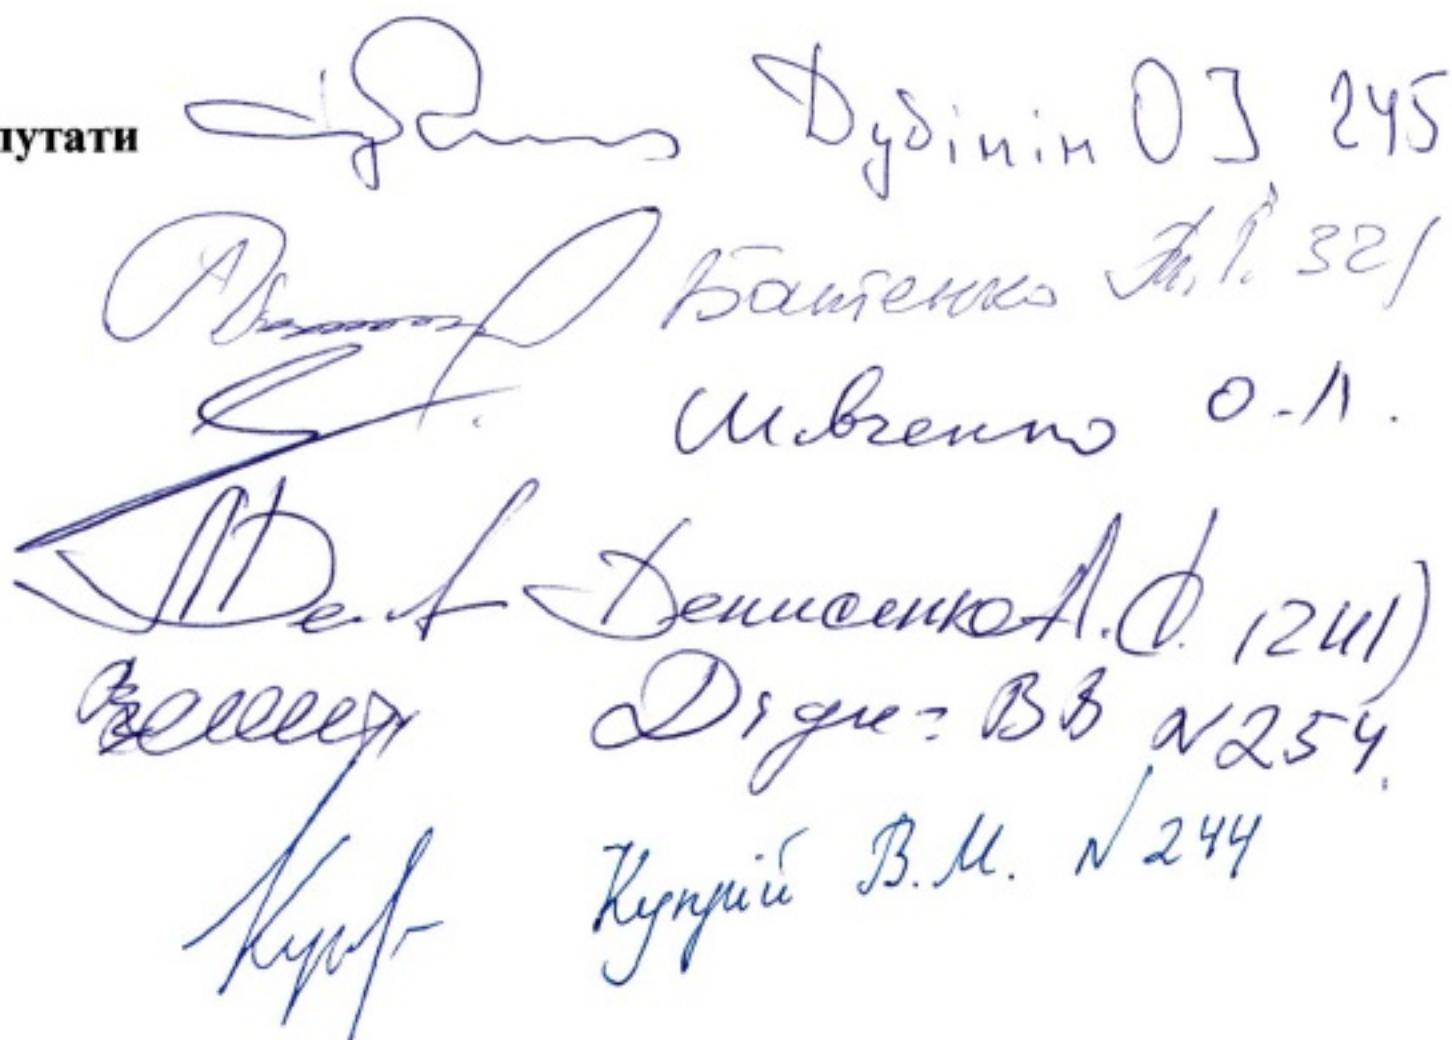 путати Дубінін О І 245
Батенко Т.І. 321
Шевченко О.Л.
Денисенко А.С. (241)
Дідич ВВ N254.
Купрій В.М. N 244